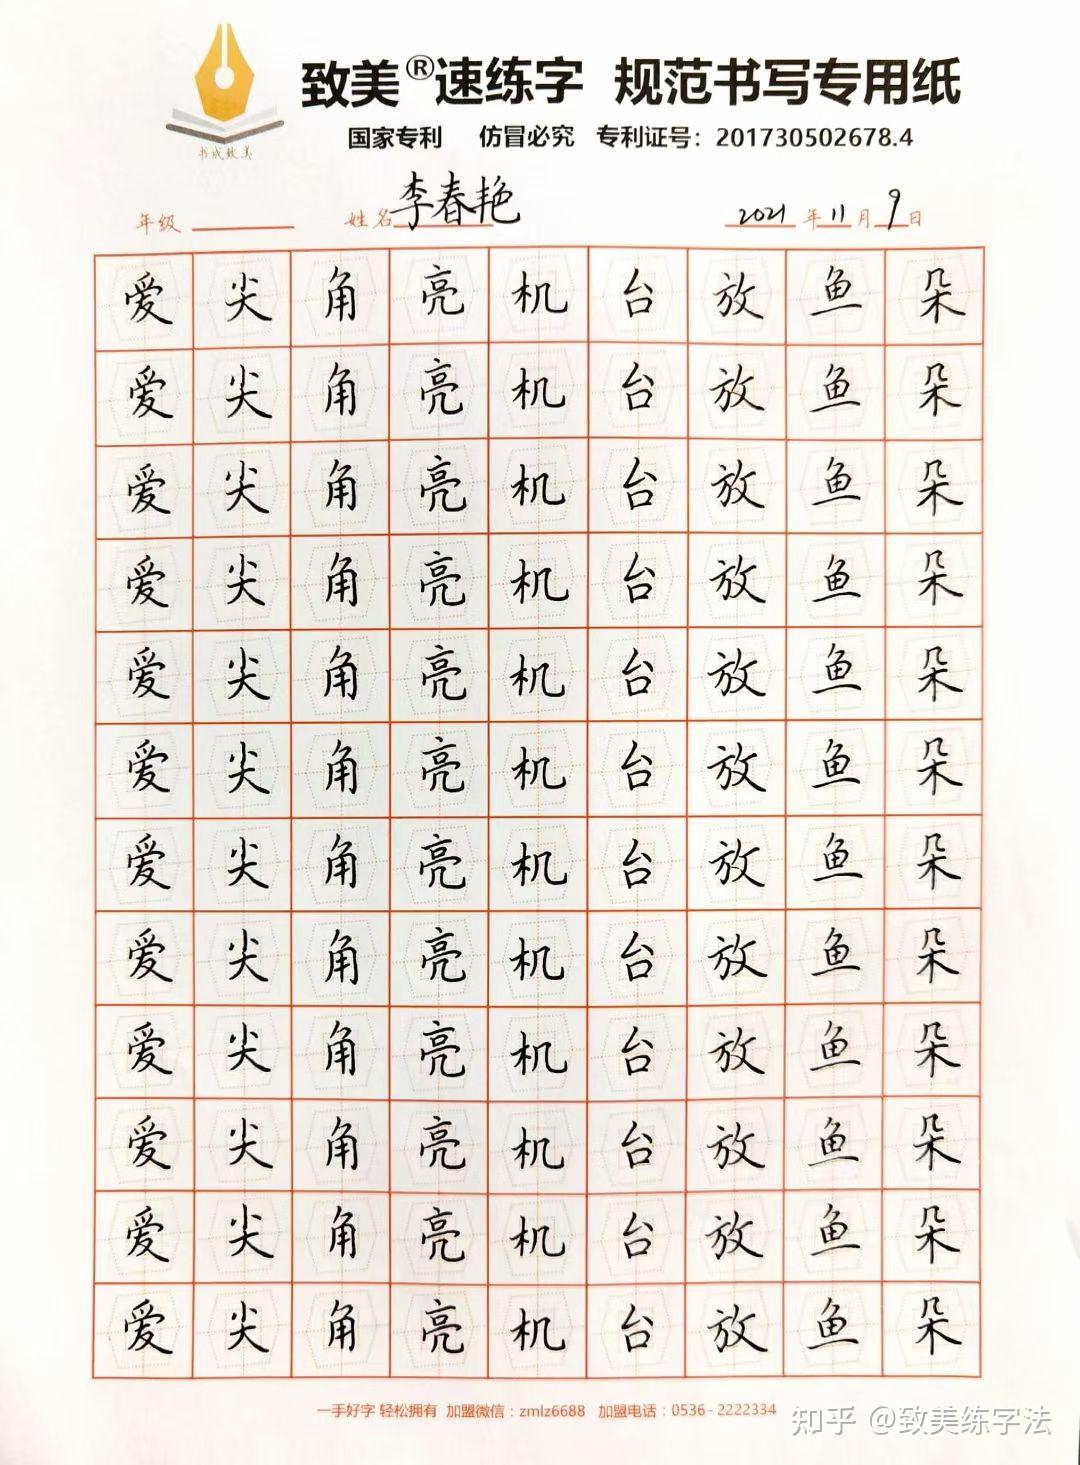 致美®速练字 规范书写专用纸
国家专利 仿冒必究 专利证号：201730502678.4
书成致美
年级 姓名 李春艳 2021 年 11 月 9 日
爱 尖 角 亮 机 台 放 鱼 朵
爱 尖 角 亮 机 台 放 鱼 朵
爱 尖 角 亮 机 台 放 鱼 朵
爱 尖 角 亮 机 台 放 鱼 朵
爱 尖 角 亮 机 台 放 鱼 朵
爱 尖 角 亮 机 台 放 鱼 朵
爱 尖 角 亮 机 台 放 鱼 朵
爱 尖 角 亮 机 台 放 鱼 朵
爱 尖 角 亮 机 台 放 鱼 朵
爱 尖 角 亮 机 台 放 鱼 朵
爱 尖 角 亮 机 台 放 鱼 朵
爱 尖 角 亮 机 台 放 鱼 朵
一手好字 轻松拥有 加盟微信：zmlz6688 加盟电话：0536-2222334
知乎 @致美练字法